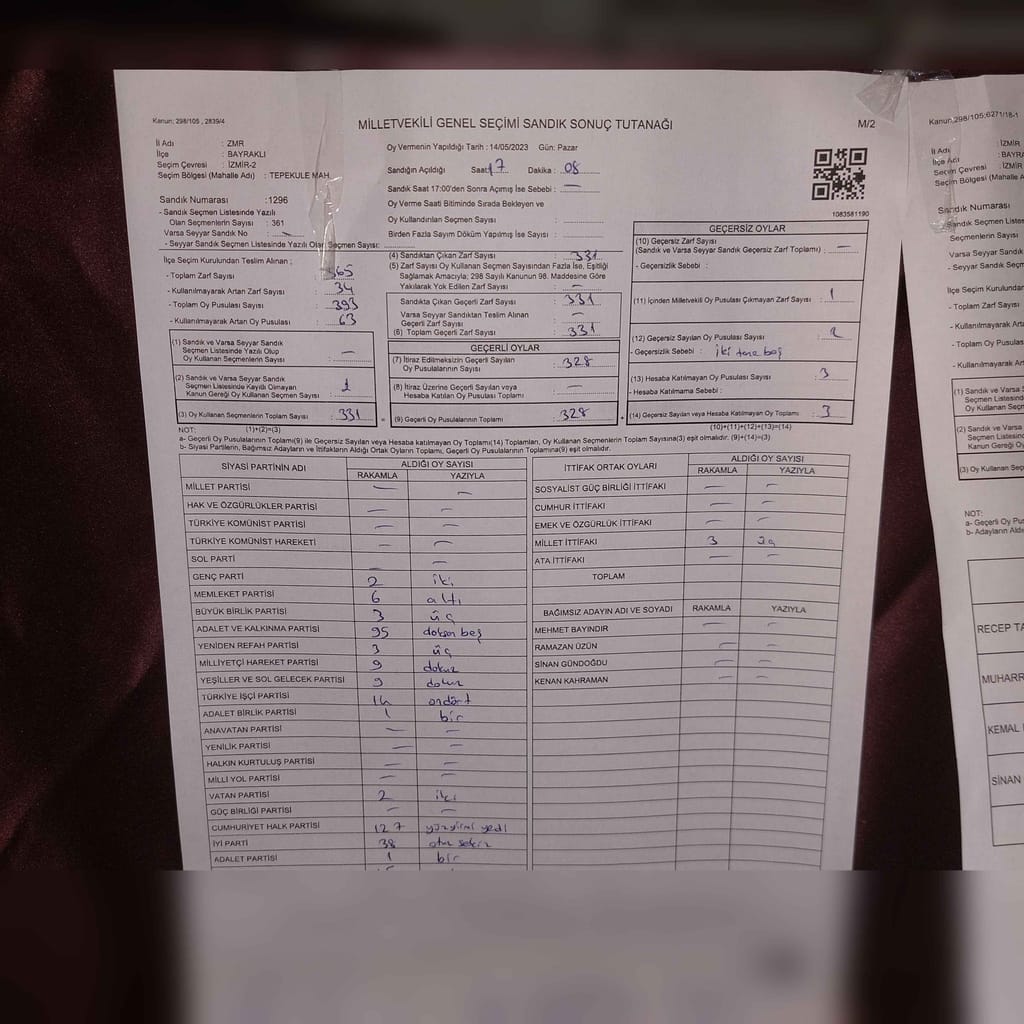 Kanun: 298/105 , 2839/4
MİLLETVEKİLİ GENEL SEÇİMİ SANDIK SONUÇ TUTANAĞI
M/2
İl Adı : ZMR
İlçe : BAYRAKLI
Seçim Çevresi : İZMİR-2
Seçim Bölgesi (Mahalle Adı) : TEPEKULE MAH.
Oy Vermenin Yapıldığı Tarih : 14/05/2023 Gün: Pazar
Sandığın Açıldığı Saat: 17 Dakika : 08
Sandık Saat 17:00'den Sonra Açımış İse Sebebi : —
Oy Verme Saati Bitiminde Sırada Bekleyen ve
Oy Kullandırılan Seçmen Sayısı :
Birden Fazla Sayım Döküm Yapılmış İse Sayısı :
1083581190
Sandık Numarası : 1296
- Sandık Seçmen Listesinde Yazılı
Olan Seçmenlerin Sayısı : 361
Varsa Seyyar Sandık No : —
- Seyyar Sandık Seçmen Listesinde Yazılı Olan Seçmen Sayısı:
İlçe Seçim Kurulundan Teslim Alınan ;
- Toplam Zarf Sayısı : 365
- Kullanılmayarak Artan Zarf Sayısı : 34
- Toplam Oy Pusulası Sayısı : 393
- Kullanılmayarak Artan Oy Pusulası : 63
(1) Sandık ve Varsa Seyyar Sandık
Seçmen Listesinde Yazılı Olup
Oy Kullanan Seçmenlerin Sayısı : —
(2) Sandık ve Varsa Seyyar Sandık
Seçmen Listesinde Kayıtlı Olmayan
Kanun Gereği Oy Kullanan Seçmen Sayısı : 1
(3) Oy Kullanan Seçmenlerin Toplam Sayısı : 331
(1)+(2)=(3)
(4) Sandıktan Çıkan Zarf Sayısı : 331
(5) Zarf Sayısı Oy Kullanan Seçmen Sayısından Fazla İse, Eşitliği
Sağlamak Amacıyla; 298 Sayılı Kanunun 98. Maddesine Göre
Yakılarak Yok Edilen Zarf Sayısı : —
Sandıkta Çıkan Geçerli Zarf Sayısı : 331
Varsa Seyyar Sandıktan Teslim Alınan
Geçerli Zarf Sayısı : —
(6) Toplam Geçerli Zarf Sayısı : 331
GEÇERLİ OYLAR
(7) İtiraz Edilmeksizin Geçerli Sayılan
Oy Pusulasının Sayısı : 328
(8) İtiraz Üzerine Geçerli Sayılan veya
Hesaba Katılan Oy Pusulası Toplamı : —
= (9) Geçerli Oy Pusulalarının Toplamı : 328 +
GEÇERSİZ OYLAR
(10) Geçersiz Zarf Sayısı
(Sandık ve Varsa Seyyar Sandık Geçersiz Zarf Toplamı) : —
- Geçersizlik Sebebi :
(11) İçinden Milletvekili Oy Pusulası Çıkmayan Zarf Sayısı : 1
(12) Geçersiz Sayılan Oy Pusulası Sayısı : 2
- Geçersizlik Sebebi : iki tane boş
(13) Hesaba Katılmayan Oy Pusulası Sayısı : 3
- Hesaba Katılmama Sebebi :
(14) Geçersiz Sayılan veya Hesaba Katılmayan Oy Toplamı : 3
(10)+(11)+(12)+(13)=(14)
NOT:
a- Geçerli Oy Pusulalarının Toplamı(9) ile Geçersiz Sayılan veya Hesaba katılmayan Oy Toplamı(14) Toplamları, Oy Kullanan Seçmenlerin Toplam Sayısına(3) eşit olmalıdır. (9)+(14)=(3)
b- Siyasi Partilerin, Bağımsız Adayların ve İttifakların Aldığı Ortak Oyların Toplamı, Geçerli Oy Pusulalarının Toplamına(9) eşit olmalıdır.
SİYASİ PARTİNİN ADI ALDIĞI OY SAYISI
RAKAMLA YAZIYLA
MİLLET PARTİSİ — —
HAK VE ÖZGÜRLÜKLER PARTİSİ — —
TÜRKİYE KOMÜNİST PARTİSİ — —
TÜRKİYE KOMÜNİST HAREKETİ — —
SOL PARTİ — —
GENÇ PARTİ 2 iki
MEMLEKET PARTİSİ 6 altı
BÜYÜK BİRLİK PARTİSİ 3 üç
ADALET VE KALKINMA PARTİSİ 95 doksan beş
YENİDEN REFAH PARTİSİ 3 üç
MİLLİYETÇİ HAREKET PARTİSİ 9 dokuz
YEŞİLLER VE SOL GELECEK PARTİSİ 9 dokuz
TÜRKİYE İŞÇİ PARTİSİ 14 ondört
ADALET BİRLİK PARTİSİ 1 bir
ANAVATAN PARTİSİ — —
YENİLİK PARTİSİ — —
HALKIN KURTULUŞ PARTİSİ — —
MİLLİ YOL PARTİSİ — —
VATAN PARTİSİ 2 iki
GÜÇ BİRLİĞİ PARTİSİ — —
CUMHURİYET HALK PARTİSİ 127 yüzyirmi yedi
İYİ PARTİ 38 otuz sekiz
ADALET PARTİSİ 1 bir
İTTİFAK ORTAK OYLARI ALDIĞI OY SAYISI
RAKAMLA YAZIYLA
SOSYALİST GÜÇ BİRLİĞİ İTTİFAKI — —
CUMHUR İTTİFAKI — —
EMEK VE ÖZGÜRLÜK İTTİFAKI — —
MİLLET İTTİFAKI 3 üç
ATA İTTİFAKI — —
TOPLAM
BAĞIMSIZ ADAYIN ADI VE SOYADI RAKAMLA YAZIYLA
MEHMET BAYINDIR — —
RAMAZAN ÜZÜN — —
SİNAN GÜNDOĞDU — —
KENAN KAHRAMAN — —
Kanun: 298/105;6271/18-1
İl Adı : İZMİR
İlçe Adı : BAYRA
Seçim Çevresi : İZMİR
Seçim Bölgesi (Mahalle A
Sandık Numarası
- Sandık Seçmen Listes
Seçmenlerin Sayısı
Varsa Seyyar Sandık
- Seyyar Sandık Seçme
İlçe Seçim Kurulundan
- Toplam Zarf Sayısı
- Kullanılmayarak Artan
- Toplam Oy Pusulası
- Kullanılmayarak Arta
(1) Sandık ve Varsa
Seçmen Listesin
Oy Kullanan Seç
(2) Sandık ve Varsa
Seçmen Listesin
Kanun Gereği Oy
(3) Oy Kullanan Seçm
NOT:
a- Geçerli Oy Pus
b- Adayların Aldı
RECEP TA
MUHARR
KEMAL
SİNAN